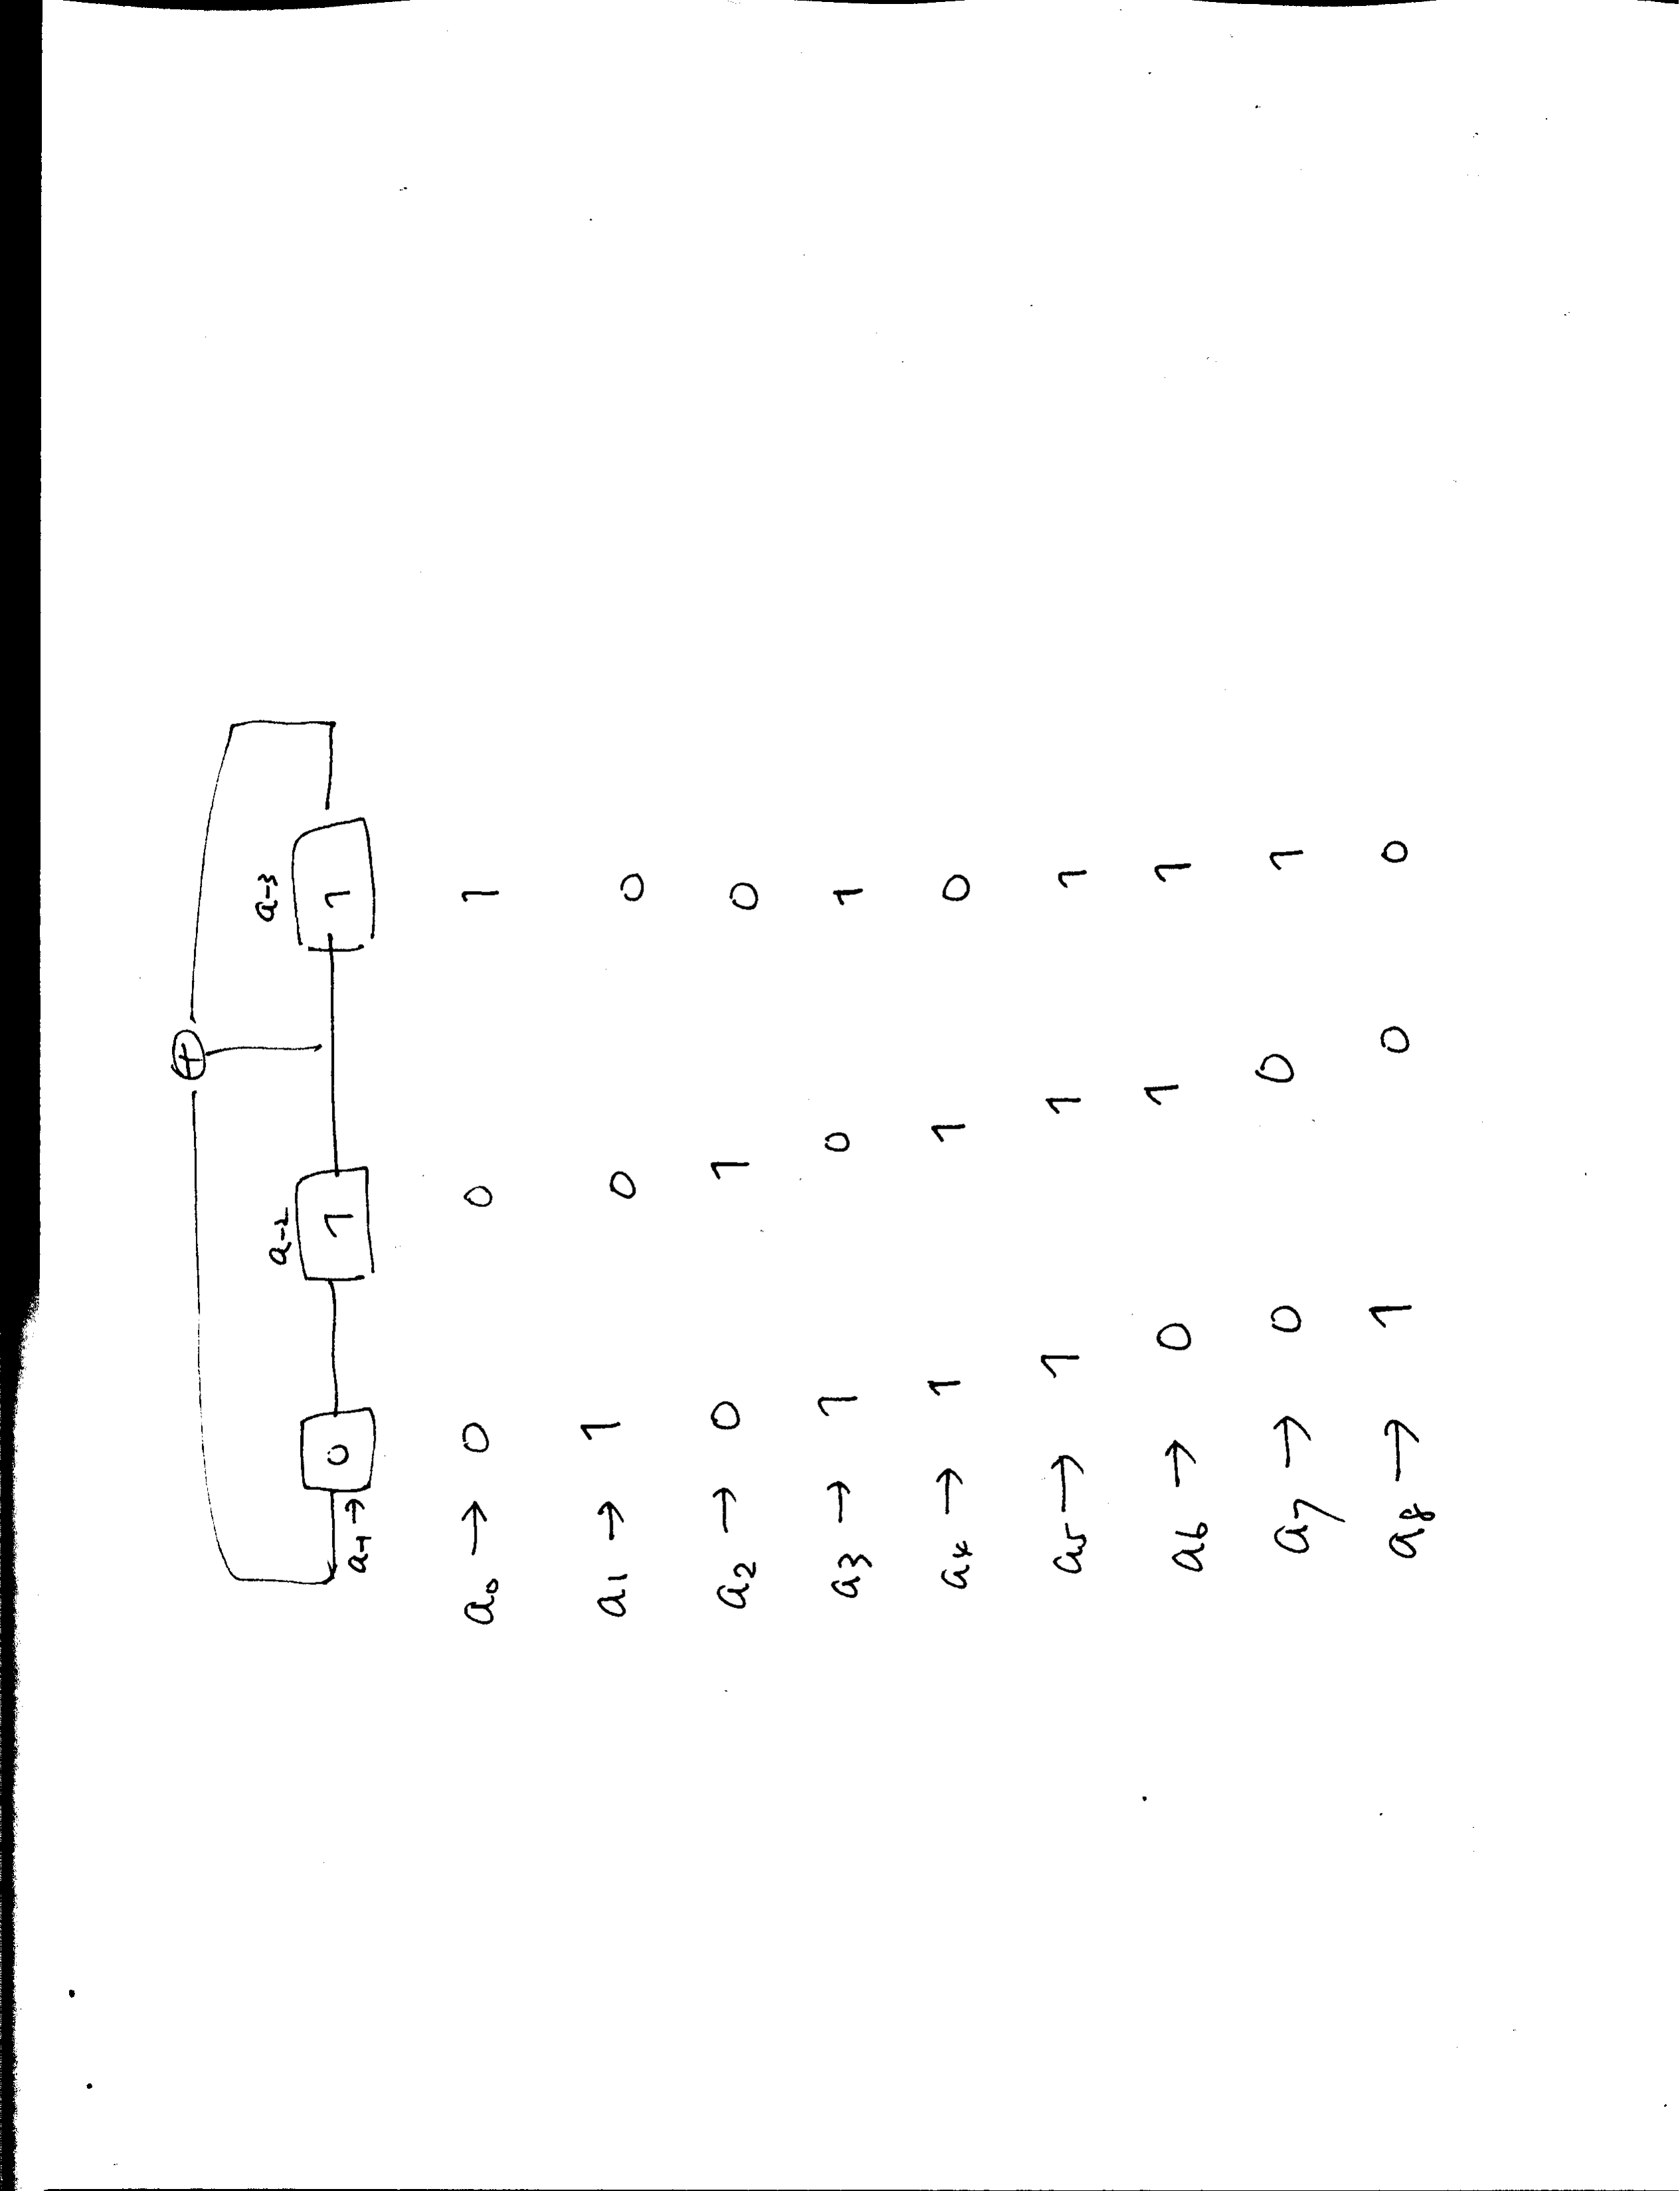 ⊕
a-2 a-3
a-1 → 0 1 1
a0 → 0 0 1
a1 → 1 0 0
a2 → 0 1 0
a3 → 1 0 1
a4 → 1 1 0
a5 → 1 1 1
a6 → 0 1 1
a7 → 0 0 1
a8 → 1 0 0